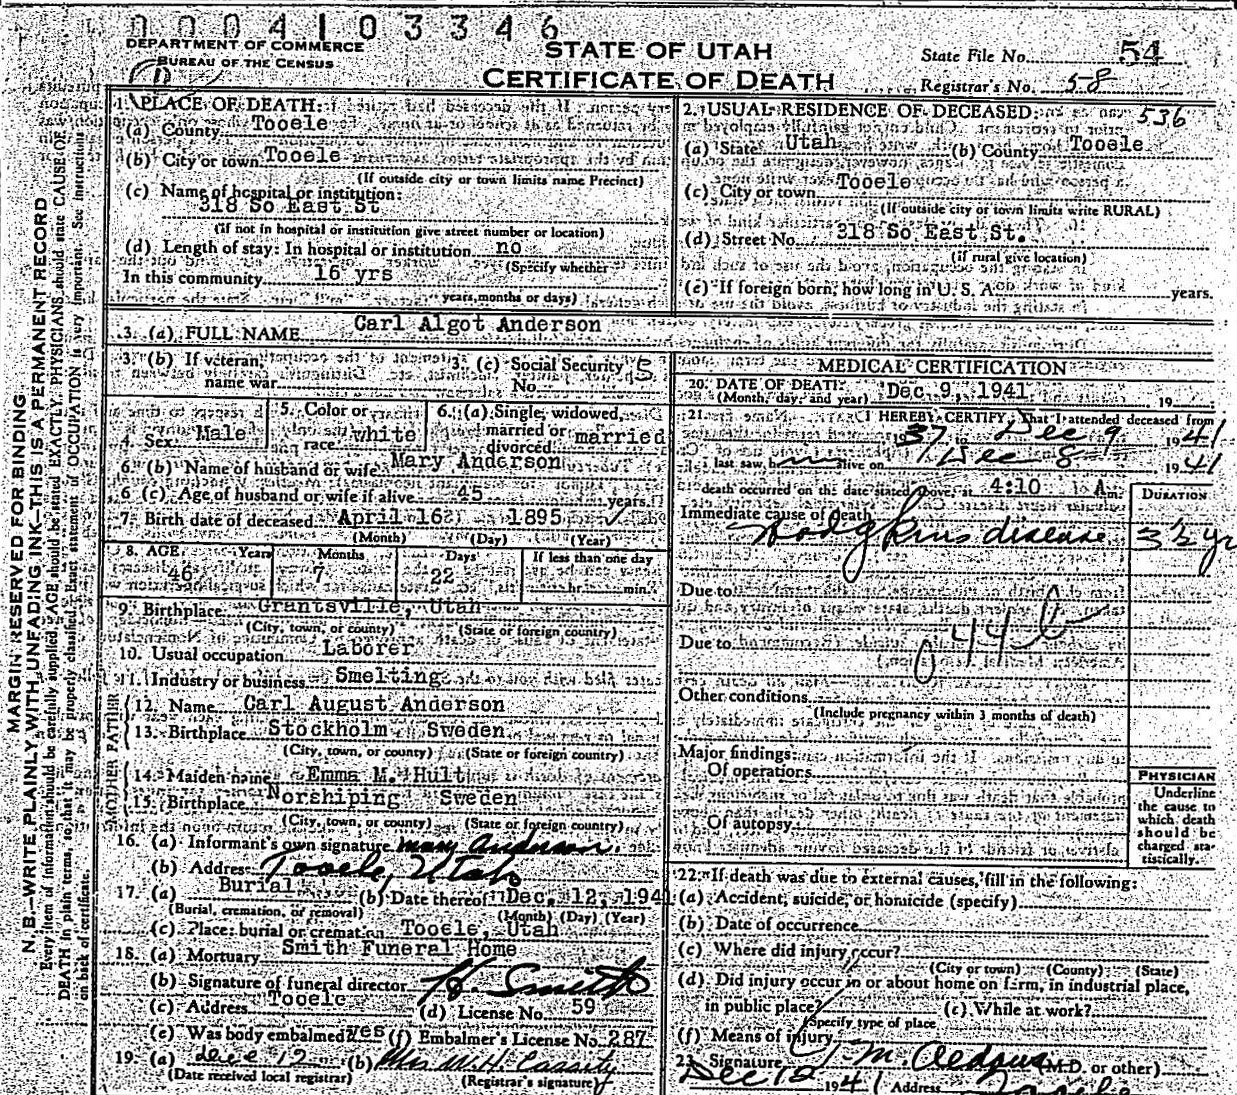 0004103346
DEPARTMENT OF COMMERCE
BUREAU OF THE CENSUS
STATE OF UTAH
CERTIFICATE OF DEATH
State File No. 54
Registrar's No. 58
MARGIN RESERVED FOR BINDING
N. B.—WRITE PLAINLY WITH UNFADING INK—THIS IS A PERMANENT RECORD
Every item of information should be carefully supplied. AGE should be stated EXACTLY. PHYSICIANS should state CAUSE OF
DEATH in plain terms, so that it may be properly classified. Exact statement of OCCUPATION is very important. See instructions
on back of certificate.
1. PLACE OF DEATH:
(a) County Tooele
(b) City or town Tooele
(If outside city or town limits name Precinct)
(c) Name of hospital or institution:
318 So East St
(if not in hospital or institution give street number or location)
(d) Length of stay: In hospital or institution no
(Specify whether
In this community 16 yrs
years, months or days)
2. USUAL RESIDENCE OF DECEASED: 536
(a) State Utah (b) County Tooele
(c) City or town Tooele
(If outside city or town limits write RURAL)
(d) Street No. 318 So East St.
(if rural give location)
(e) If foreign born, how long in U. S. A. years.
3. (a) FULL NAME Carl Algot Anderson
3. (b) If veteran, name war
3. (c) Social Security No. 5
4. Sex Male
5. Color or race white
6. (a) Single, widowed, married or divorced married
6. (b) Name of husband or wife Mary Anderson
6 (c) Age of husband or wife if alive 45 years.
7. Birth date of deceased April 16 1895
(Month) (Day) (Year)
8. AGE Years Months Days If less than one day
46 7 22 hr. min.
9. Birthplace Grantsville, Utah
(City, town, or county) (State or foreign country)
10. Usual occupation Laborer
11. Industry or business Smelting
FATHER
12. Name Carl August Anderson
13. Birthplace Stockholm Sweden
(City, town, or county) (State or foreign country)
MOTHER
14. Maiden name Emma M. Hult
15. Birthplace Norshiping Sweden
(City, town, or county) (State or foreign country)
16. (a) Informant's own signature Mary Anderson.
(b) Address Tooele, Utah
17. (a) Burial (b) Date thereof Dec. 12, 1941
(Burial, cremation, or removal) (Month) (Day) (Year)
(c) Place: burial or cremation Tooele, Utah
18. (a) Mortuary Smith Funeral Home
(b) Signature of funeral director H. Smith
(c) Address Tooele (d) License No. 59
(e) Was body embalmed yes (f) Embalmer's License No. 287
19. (a) Dec 12 (b) Mrs W. H. Cassity
(Date received local registrar) (Registrar's signature)
MEDICAL CERTIFICATION
20. DATE OF DEATH: Dec 9, 1941
(Month, day, and year) 19
21. I HEREBY CERTIFY, That I attended deceased from
1937 to Dec 9 1941
I last saw him alive on Dec 8 1941
death occurred on the date stated above, at 4:10 A m.
Immediate cause of death DURATION
Hodgkins disease 3½ yr
Due to
Due to
044
Other conditions
(Include pregnancy within 3 months of death)
Major findings:
Of operations
Of autopsy
PHYSICIAN
Underline
the cause to
which death
should be
charged sta-
tistically.
22. If death was due to external causes, fill in the following:
(a) Accident, suicide, or homicide (specify)
(b) Date of occurrence
(c) Where did injury occur?
(City or town) (County) (State)
(d) Did injury occur in or about home on farm, in industrial place,
in public place? (e) While at work?
(Specify type of place
(f) Means of injury
23. Signature M. (M.D. or other)
Dec 12 1941 Address Tooele